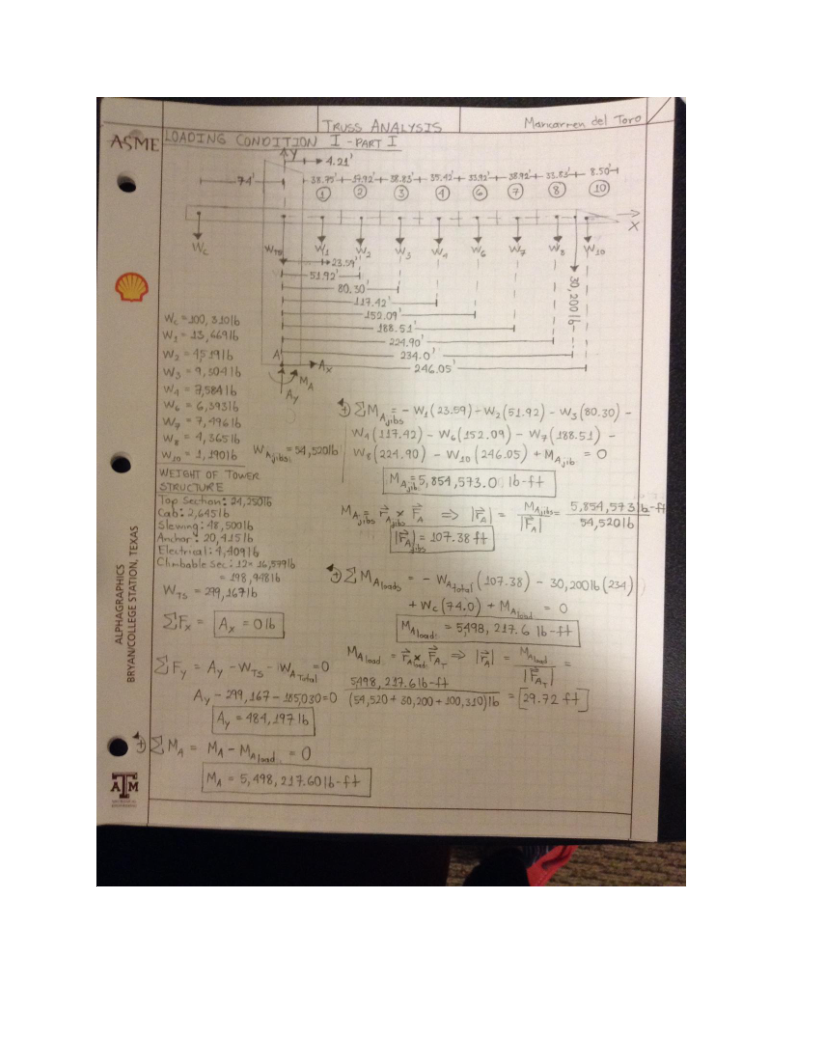 TRUSS ANALYSIS
Maricarmen del Toro
ASME
LOADING CONDITION I - PART I
Y
4.21'
74'
38.75' 37.92' 38.83' 35.42' 33.92' 38.92' 33.83' 8.50'
1 2 3 4 6 7 8 10
X
Wc WTS W1 W2 W3 W4 W6 W7 W8 W10
23.59'
51.92'
80.30'
117.42'
152.09'
188.51'
224.90'
234.0'
246.05'
30,200 lb
A Ax
MA
Ay
Wc = 100,310 lb
W1 = 13,669 lb
W2 = 4,519 lb
W3 = 9,304 lb
W4 = 7,584 lb
W6 = 6,393 lb
W7 = 7,496 lb
W8 = 4,365 lb
W10 = 1,190 lb
WAjibs: = 54,520 lb
WEIGHT OF TOWER
STRUCTURE
Top Section: 24,250 lb
Cab: 2,645 lb
Slewing: 48,500 lb
Anchor: 20,415 lb
Electrical: 4,409 lb
Climbable Sec: 12 = 16,579 lb
= 198,948 lb
WTS = 299,167 lb
ΣFx = Ax = 0 lb
ΣFy = Ay - WTS - WATotal = 0
Ay - 299,167 - 185,030 = 0
Ay = 484,197 lb
+) ΣMA = MA - MAload. = 0
MA = 5,498,217.60 lb-ft
+) ΣMAjibs = - W1(23.59) - W2(51.92) - W3(80.30) -
W4(117.42) - W6(152.09) - W7(188.51) -
W8(224.90) - W10(246.05) + MAjib = 0
MAjib = 5,854,573.0 lb-ft
MAjibs = r⃗Ajibs × F⃗A ⇒ |r⃗A| = MAjibs / |F⃗A| = 5,854,573 lb-ft / 54,520 lb
|r⃗A|jibs = 107.38 ft
+) ΣMAloads = - WAtotal(107.38) - 30,200 lb(234)
+ Wc(74.0) + MAload = 0
MAload: = 5,498,217.6 lb-ft
MAload = r⃗Aload × F⃗AT ⇒ |r⃗A| = MAload / |F⃗AT| =
5,498,217.6 lb-ft / (54,520 + 30,200 + 100,310) lb = [29.72 ft]
ALPHAGRAPHICS
BRYAN/COLLEGE STATION, TEXAS
ATM